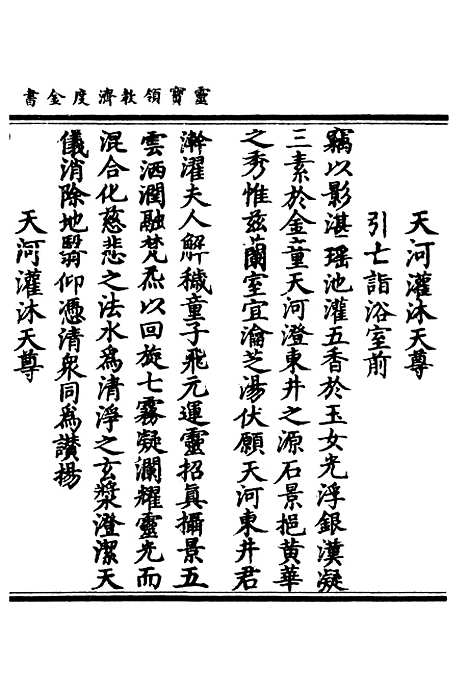 靈寶領敎濟度金書
天河灌沐天尊
引亡詣浴室前
竊以影湛瑤池灌五香於玉女光浮銀漢凝
三素於金童天河澄東井之源石景挹黃華
之秀惟茲蘭室宜瀹芝湯伏願天河東井君
澣濯夫人解穢童子飛元運靈招眞攝景五
雲洒潤融梵炁以回旋七霧凝瀾耀靈光而
混合化慈悲之法水爲清淨之玄漿澄潔天
儀消除地翳仰憑清衆同爲讚揚
天河灌沐天尊